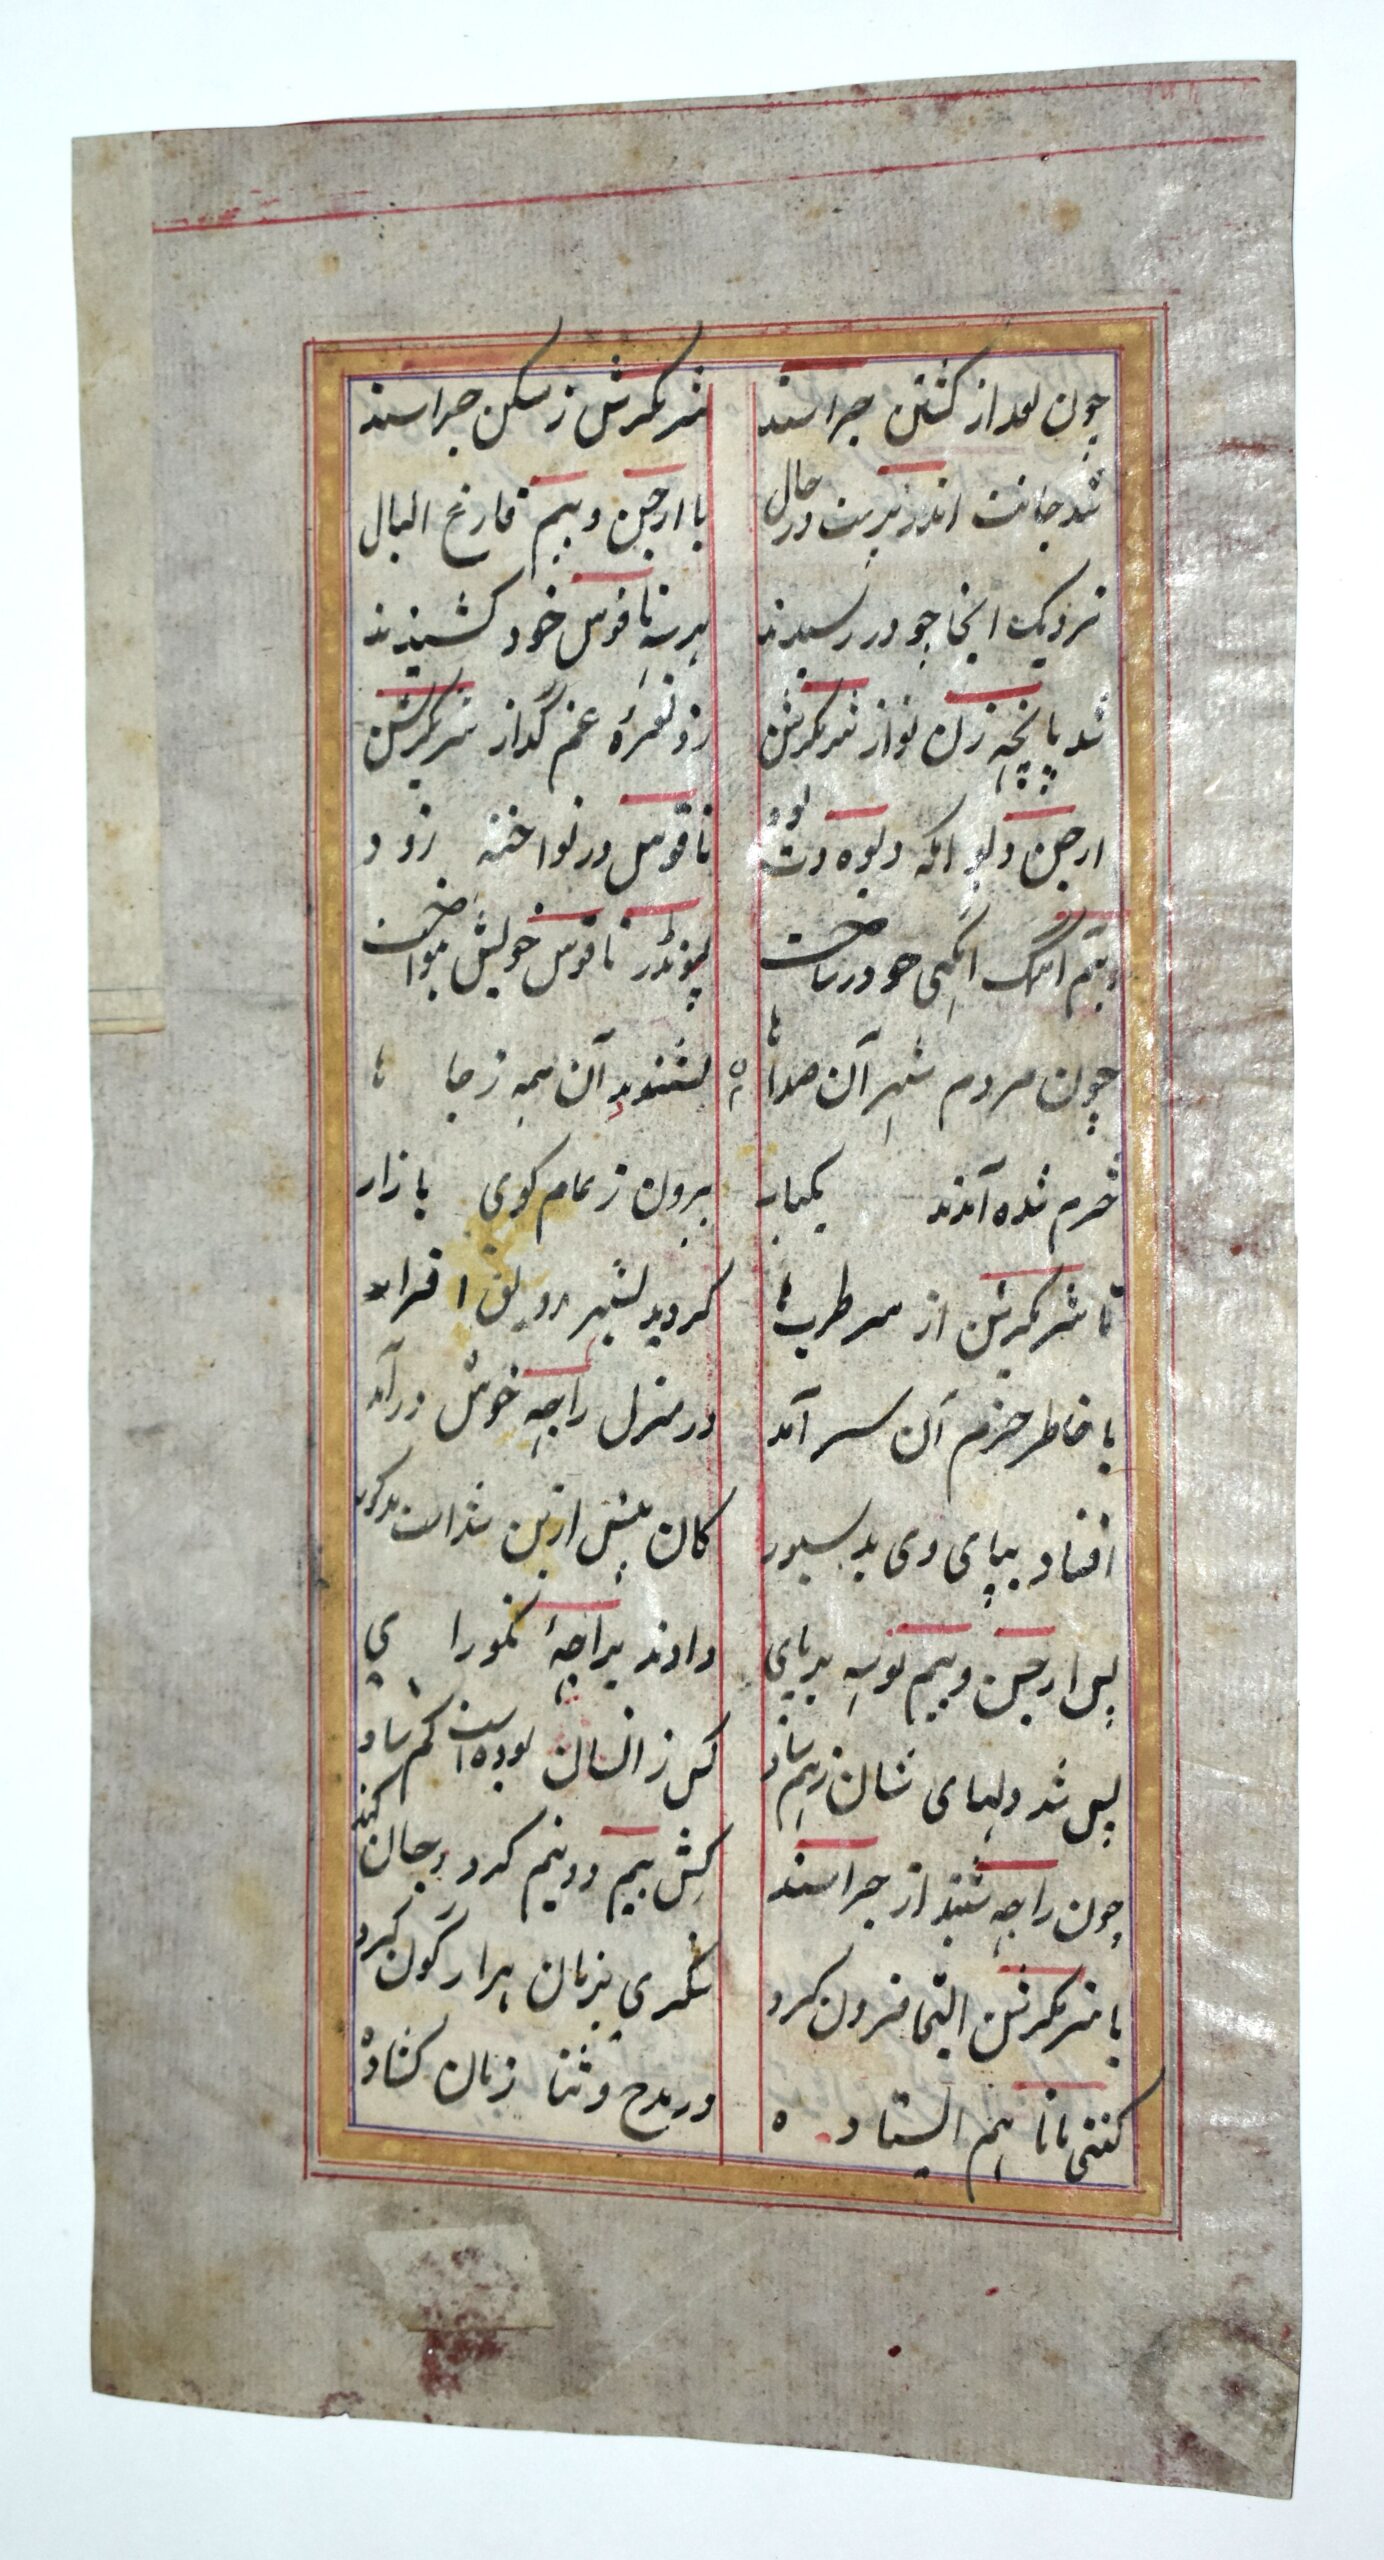 چون بعد از کشتن جراسند
سریکرشن ز مسکن جراسند
شد جانب اندرپرست در حال
با ارجن و بیم فارغ البال
نزدیک اینجا چو در رسیدند
هر سه ناقوس خود کشیدند
شد پانچجه زن نواز سریکرشن
زو نعرهٔ غم گداز سریکرشن
ارجن دیو انکه دیوه دت بود
ناقوس در نواخته زود
بیم آنگ چو در ساخت
پوندر ناقوس خویش بنواخت
چون مردم شهر آن صداها
بشنودند آن همه ز جاها
خرم شده آمدند یکبار
برون ز تمام کوی بازار
تا سریکرشن از سر طربها
کردید بشهر رونق افزا
با خاطر خرم آن سر آمد
در منزل راجه خوش درآمد
افتاد بپای وی بدستور
کان پیش ازین شداست مذکور
پس ارجن و بیم بوسه بر پای
دادند براجهٔ نکورای
پس شد دلهای شان زهم شاد
کس ز انسان بوده است کم شاد
چون راجه شنید از جراسند
کش بیم دو نیم کرد و جان کند
با سریکرشن التجا فزون کرد
شکری بزبان هزار گون کرد
کنتی مانا هم ایستاده
در مدح و ثنا زبان کشاده